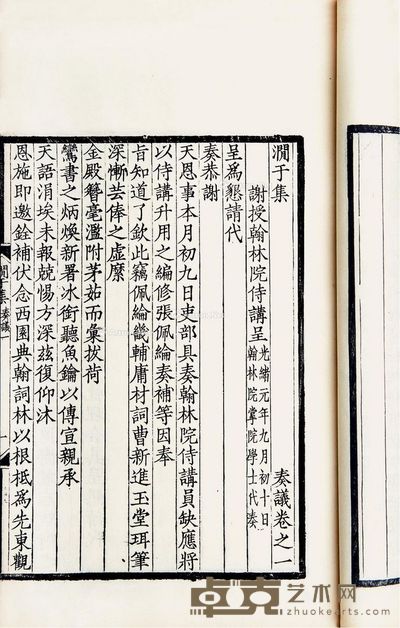 澗于集 奏議卷之一
謝授翰林院侍講呈 光緒元年九月初十日
翰林院掌院學士代奏
呈爲懇請代
奏恭謝
天恩事本月初九日吏部具奏翰林院侍講員缺應將
以侍講升用之編修張佩綸奏補等因奉
旨知道了欽此竊佩綸畿輔庸材詞曹新進玉堂珥筆
深慚芸俸之虛糜
金殿簪毫濫附茅茹而彙拔荷
鸞書之炳煥新署冰銜聽魚鑰以傳宣親承
天語涓埃未報兢惕方深茲復仰沐
恩施即邀銓補伏念西園典翰詞林以根柢爲先東觀
澗于集 奏議一
一
卓克艺术网
www.zhuokearts.com